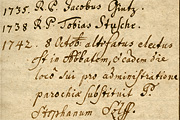 1735. R. P. Jacobus
1738 R. P. Tobias Stusche.
1742. 8 Octob. altefatus electus
est in Abbatem, et eadem die
loco sui pro administratione
parochiæ substituit P.
Stephanum